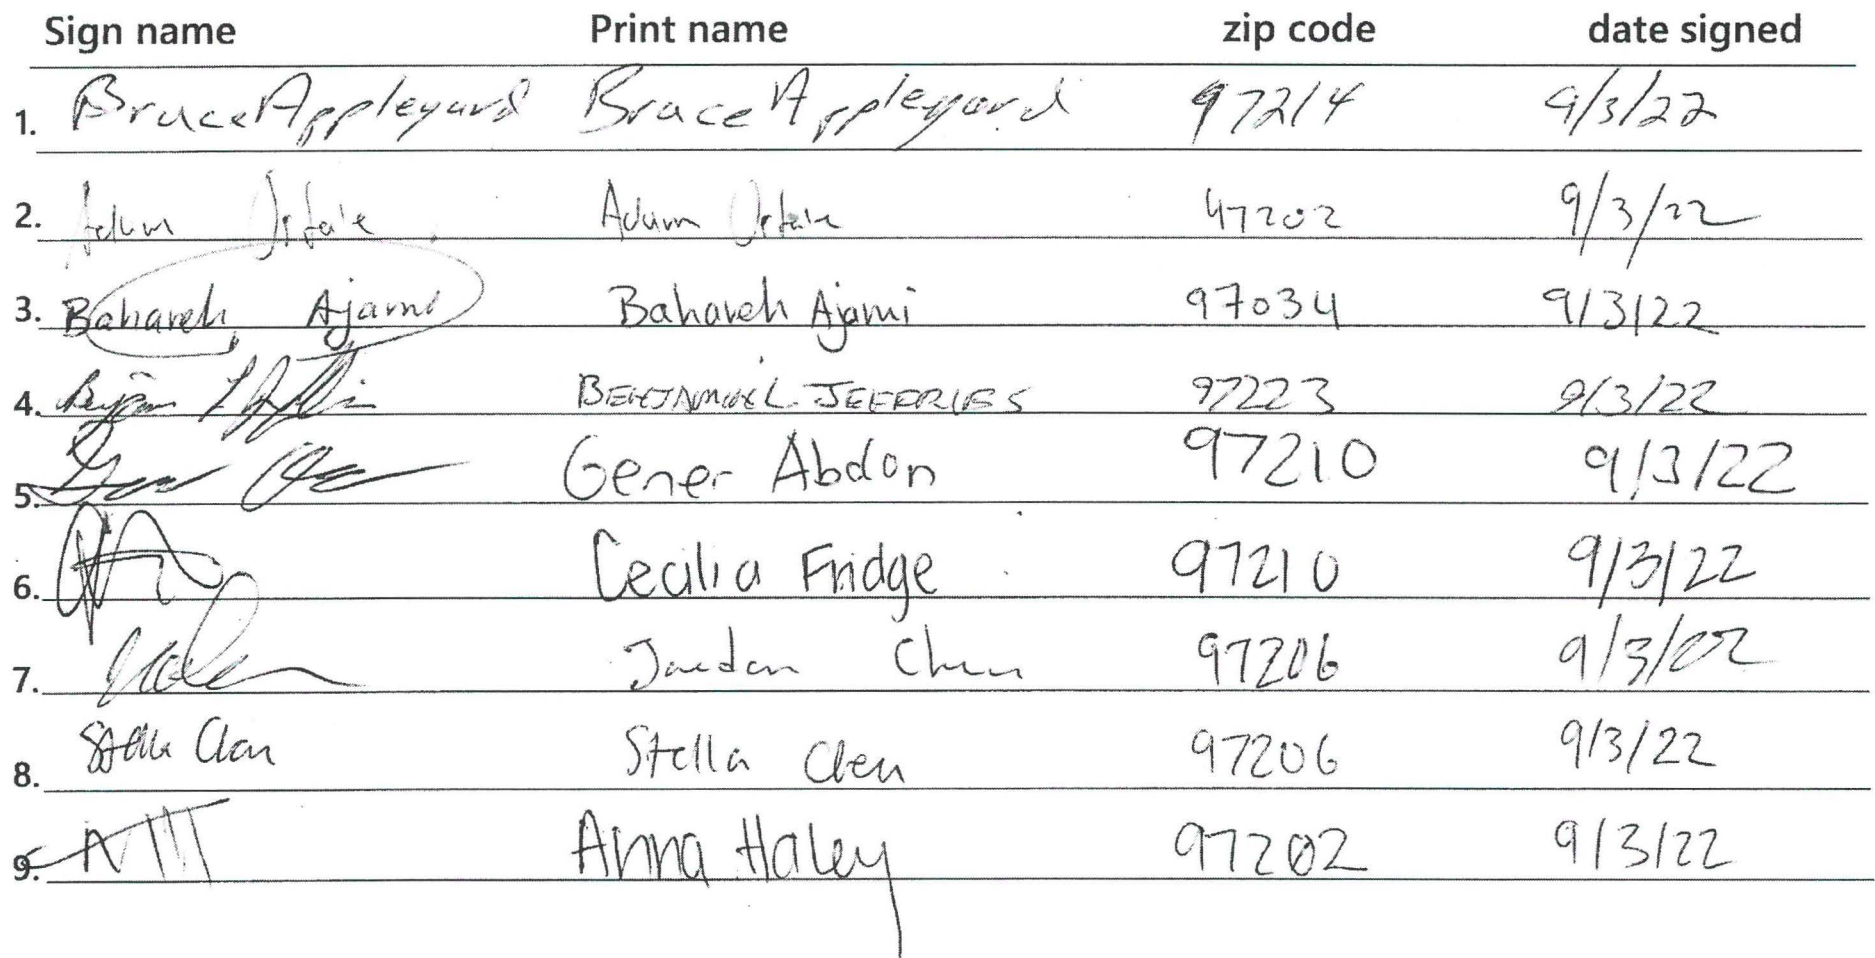 Sign name Print name zip code date signed
1. Bruce Appleyard Bruce Appleyard 97214 9/3/22
2. Adam Adam 97202 9/3/22
3. Bahareh Ajami Bahareh Ajami 97034 9/3/22
4. JEFFERIES 97223 9/3/22
5. Gener Abdon 97210 9/3/22
6. Cecilia Fridge 97210 9/3/22
7. Jaedon Chen 97206 9/3/22
8. Stella Chen Stella Chen 97206 9/3/22
9. Anna Haley 97202 9/3/22